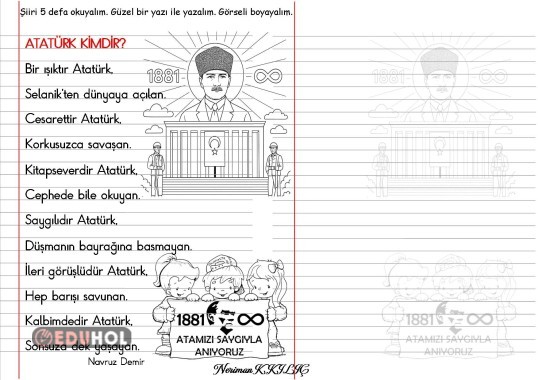 Şiiri 5 defa okuyalım. Güzel bir yazı ile yazalım. Görseli boyayalım.
ATATÜRK KİMDİR?
Bir ışıktır Atatürk,
Selanik'ten dünyaya açılan.
Cesarettir Atatürk,
Korkusuzca savaşan.
Kitapseverdir Atatürk,
Cephede bile okuyan.
Saygılıdır Atatürk,
Düşmanın bayrağına basmayan.
İleri görüşlüdür Atatürk,
Hep barışı savunan.
Kalbimdedir Atatürk,
Sonsuza dek yaşayan.
Navruz Demir
1881 ∞
1881 ∞
ATAMIZI SAYGIYLA
ANIYORUZ
EDUHOL
Neriman
1881 ∞
1881 ∞
ATAMIZI SAYGIYLA
ANIYORUZ